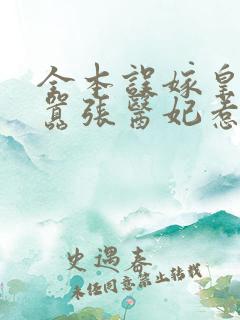 全本误嫁皇
嚣张医妃惹
史遇春
未经同意禁止转载